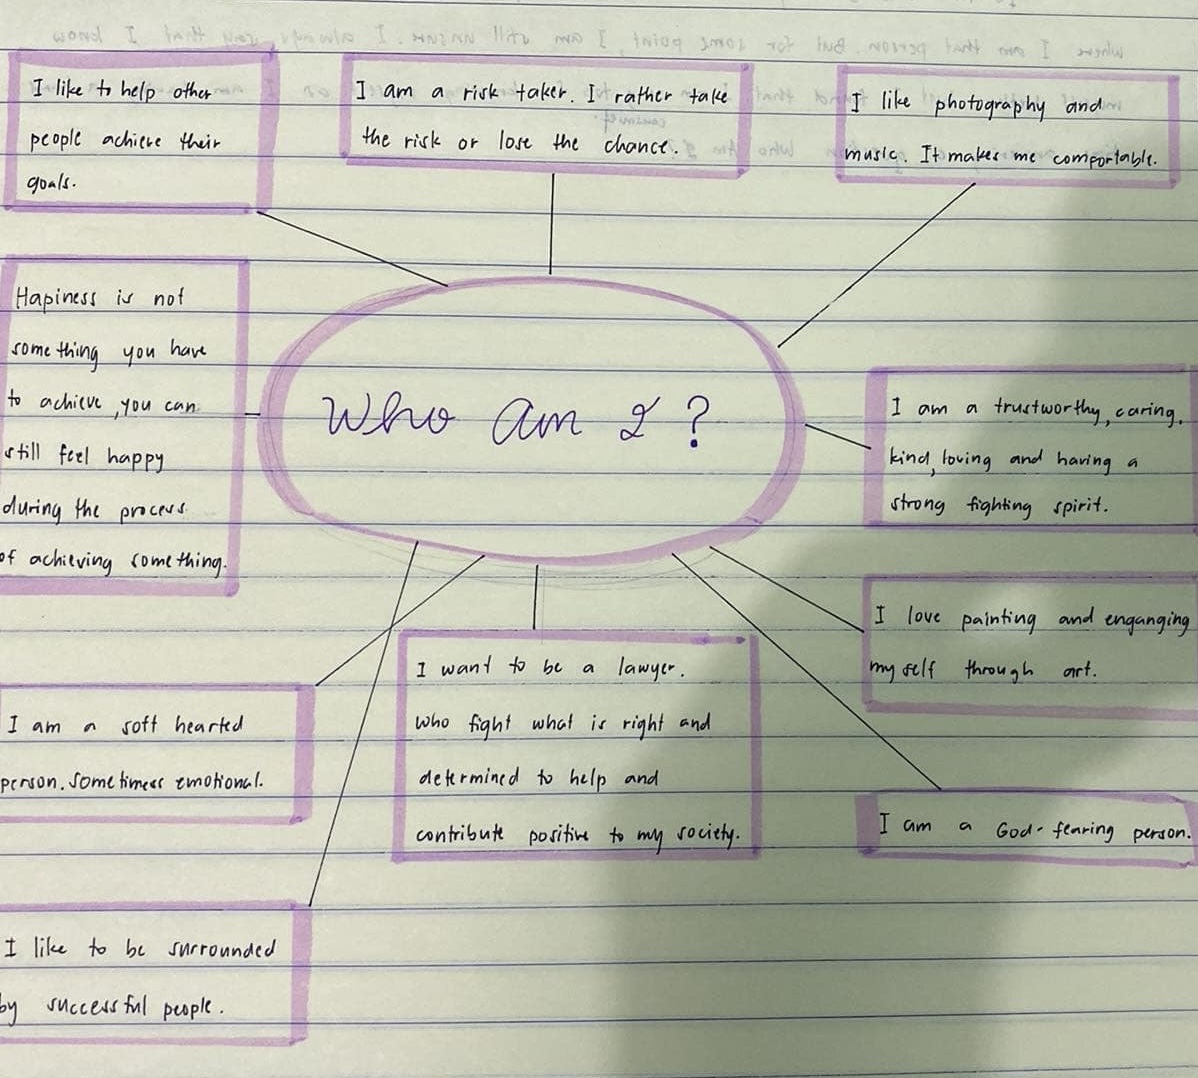 I like to help other
people achieve their
goals.
I am a risk taker. I rather take
the risk or lose the chance.
I like photography and
music. It makes me comportable.
Hapiness is not
something you have
to achieve, you can
still feel happy
during the process
of achieving something.
Who am I ?
I am a trustworthy, caring,
kind, loving and having a
strong fighting spirit.
I love painting and enganging
myself through art.
I am a soft hearted
person. Sometimess emotional.
I want to be a lawyer.
who fight what is right and
determined to help and
contribute positive to my society.
I am a God-fearing person.
I like to be surrounded
by successful people.